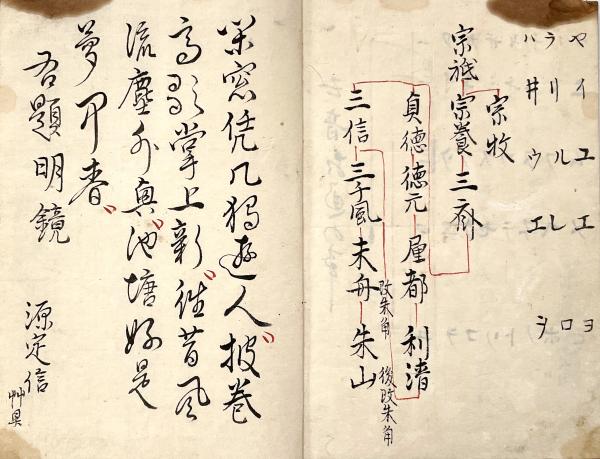 ヤイユエヨ
ラリルレロ
井ウエヲ
宗牧
宗祇 宗養 三
貞德 德元 屋都 利清
後改朱角
改朱角
三信 三千風 未舟 朱山
窓凭几獨遊人披巻
高歌掌上新往昔風
流塵外興池塘好是
夢中春
右題明鏡
源定信
艸具